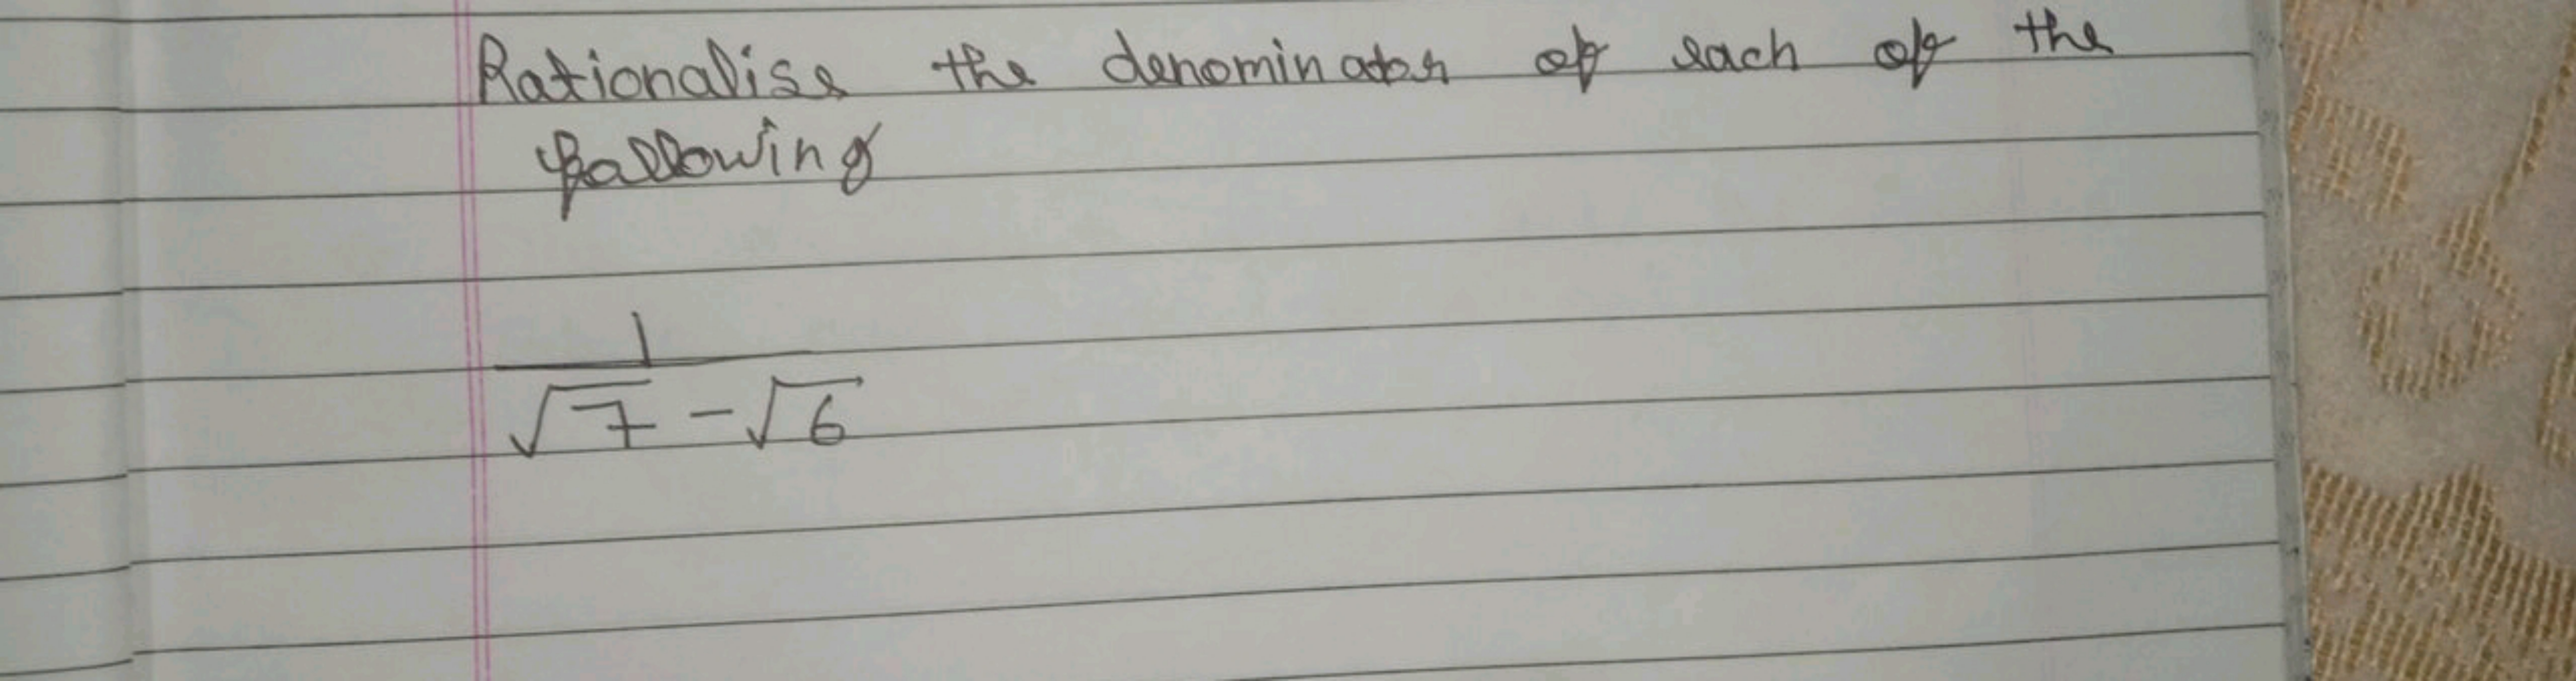 Rationalise the denominator of each of the
following
1
√7 - √6